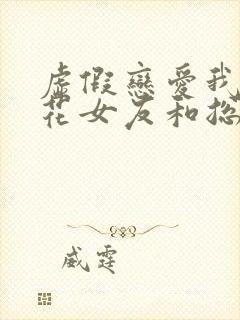 虛假戀愛我
花女友和總
威霆